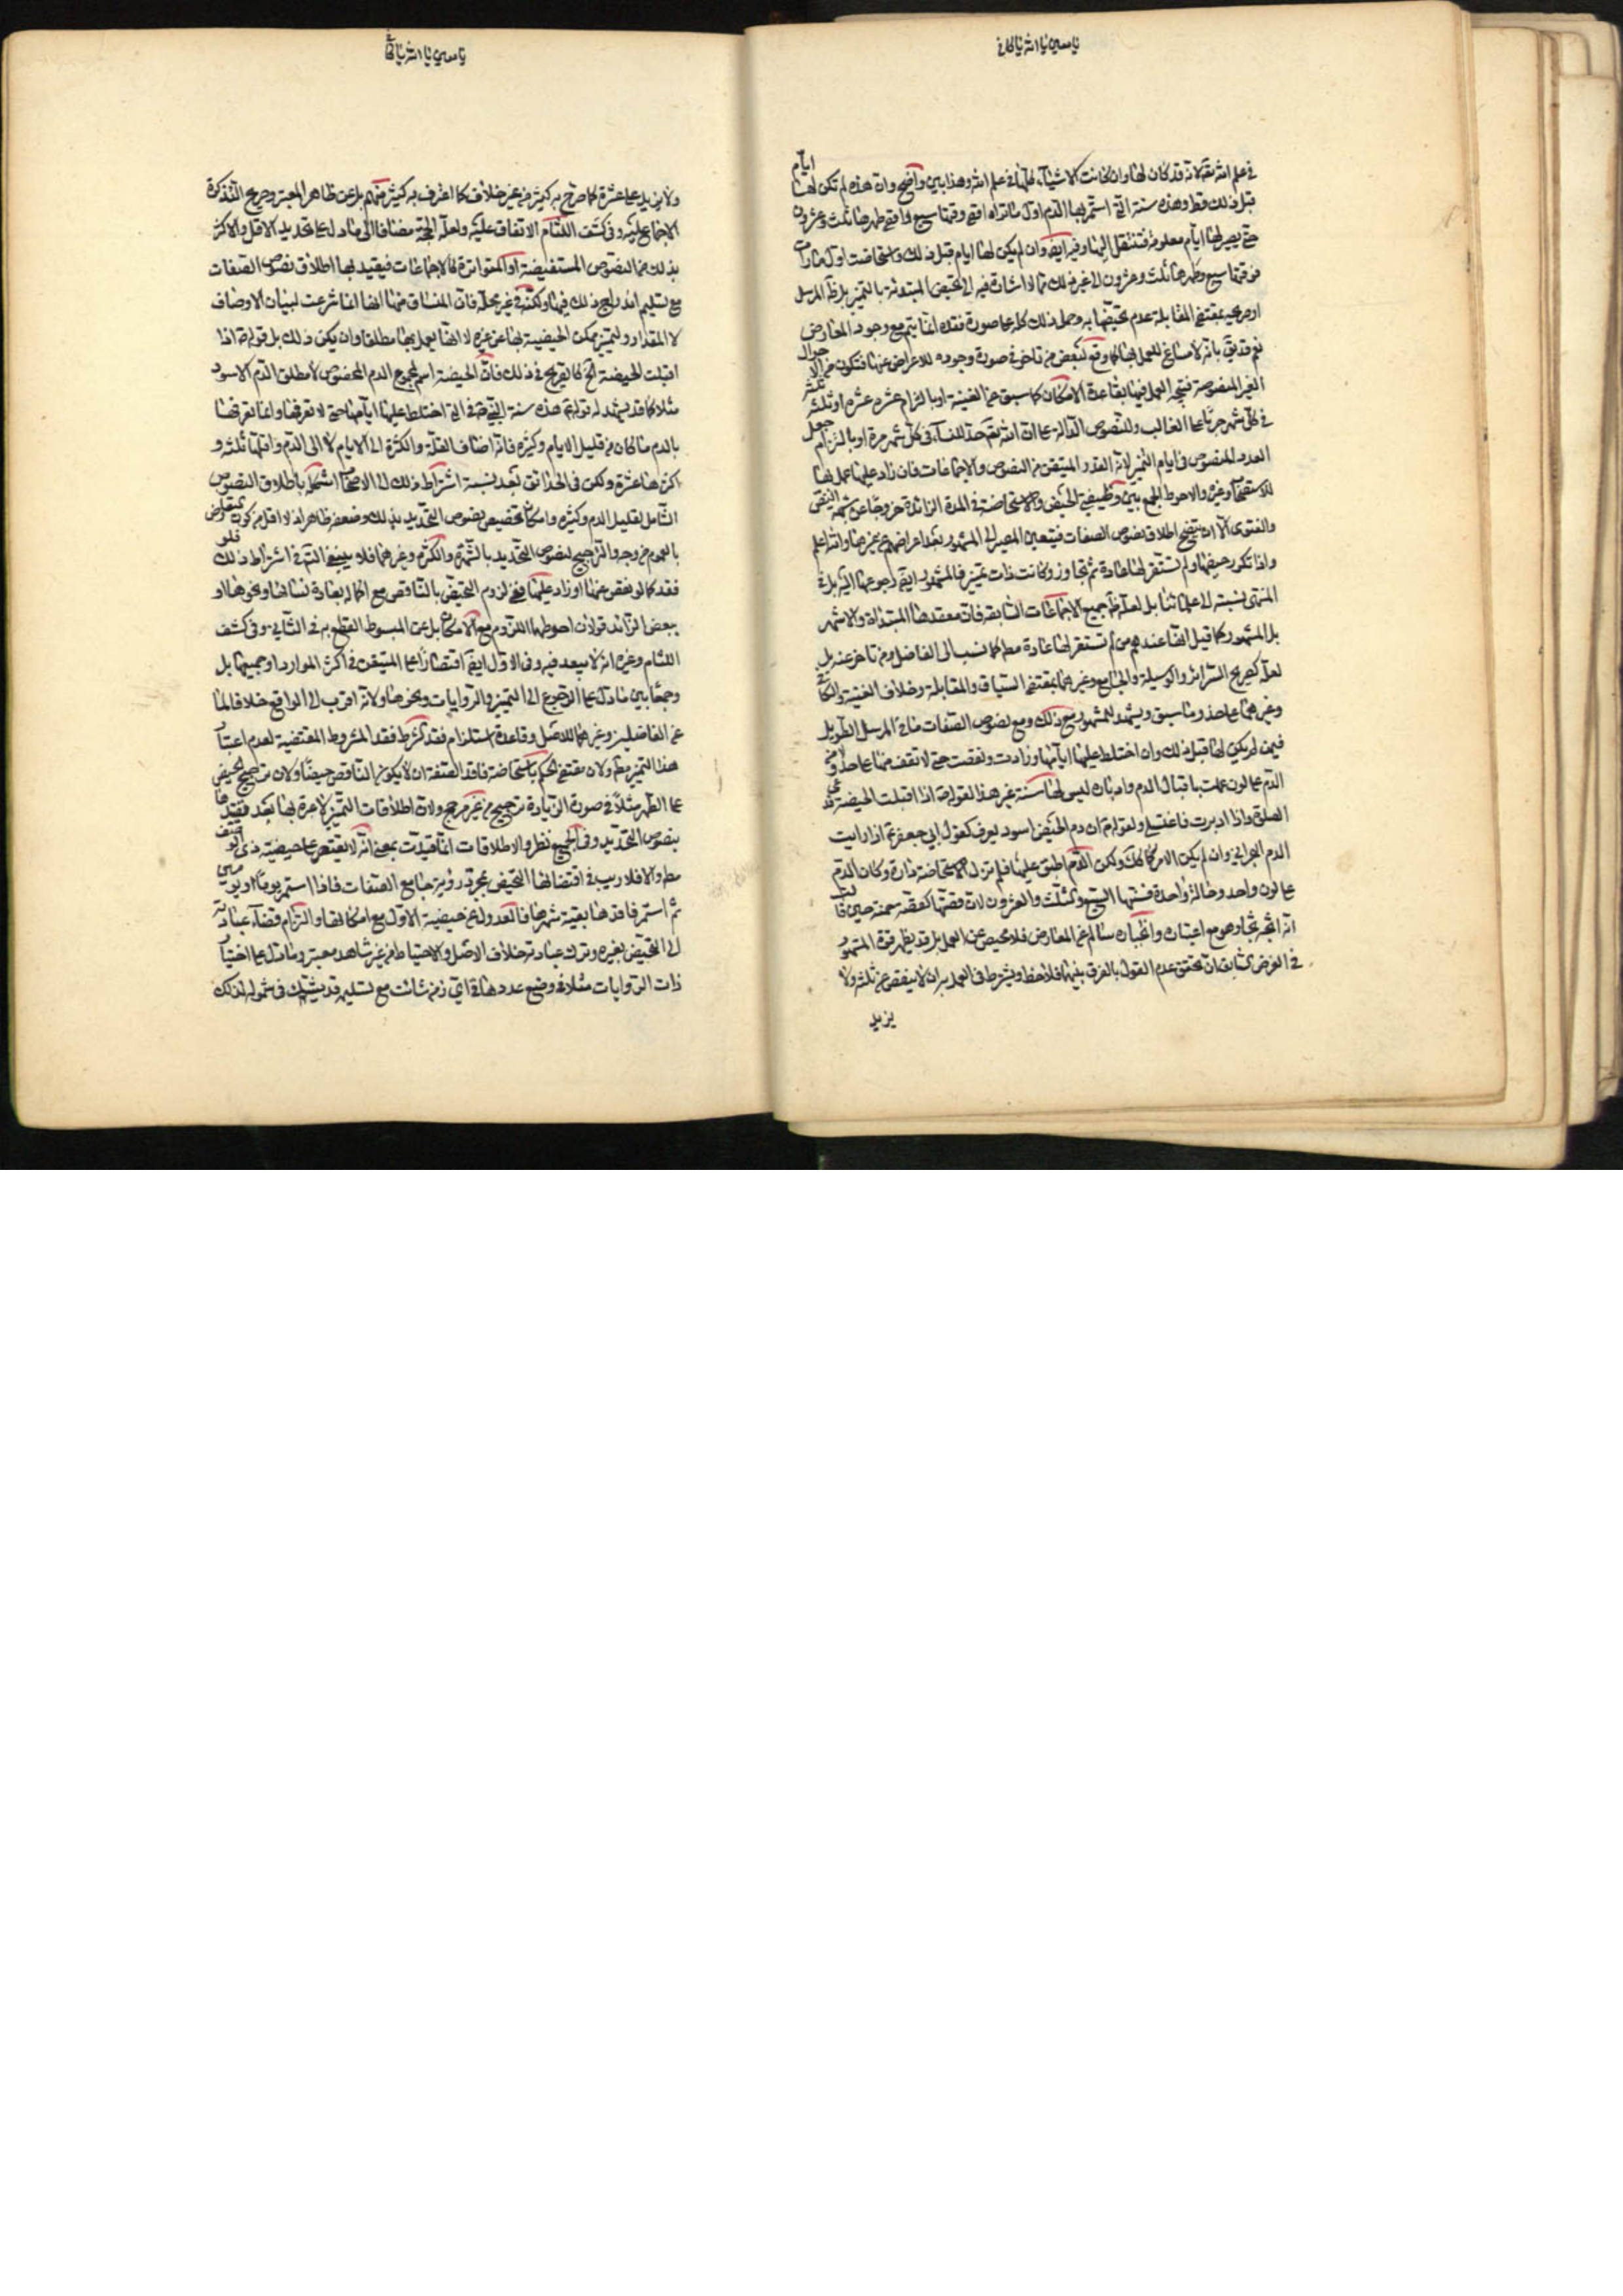 يا سمي يا الله يا كافي
في علم الله تعه لانه قد كان لها وان كانت الاشياء كلها في علم الله وهذا بين واضح وان هذه لم تكن لها ايام
قبل ذلك قط وهذه سنة التي استمر بها الدم اول ما تراه اقصى وقتها سبع واقصى طهرها ثلث وعشرون
حتى يصير لها ايام معلومة فتنتقل اليها وفيه ايضا وان لم يكن لها ايام قبل ذلك واستحاضت اول ما رأت
فوقتها سبع وطهرها ثلث وعشرون الى غير ذلك مما اشارة فيه الى تحيض المبتدئة بالتميز بل ظ المرسل
او صريحه بمقتضى المقابلة عدم تحيضها به وحمل ذلك كله على صورة فقده انما يتم مع وجود المعارض
نعم قد يق بانه لا مساغ للعمل بها كما وقع لبعض من تاخر في صورة وجوده للاعراض عنها فتكون من الاحوال
الغير المنصوصة فيتجه العمل فيها بقاعدة الامكان كما سبق عن الغنية او بالتزام عشرة عشرة او ثلثة ثلثة
في كل شهر جريا على الغالب وللنصوص الدالة على ان الله تعه حد للنساء في كل شهر مرة او بالتزام جعل
العدد المنصوص في ايام التميز لانه القدر المتيقن من النصوص والاجماعات فان زاد عليها عمل بها
للاستصحاب وغيره والاحوط الجمع بين وظيفتي الحيض والاستحاضة في المدة الزائدة خروجا عن شبهة النقص
والفتوى الا ان يتضح اطلاق نصوص الصفات فيتعين المصير الى المشهور بعد اعراضهم عن غيرها والله اعلم
واذا تكرر حيضها ولم تستقر لها عادة ثم تجاوز وكانت ذات تميز فالمشهور ايضا رجوعها اليه بل في
المنتهى نسبته الى علمائنا بل لعله ظ جميع الاجماعات السابقة فان معقدها المبتدأة والاشهر
بل المشهور كما قيل انها عندهم من لم تستقر لها عادة مط كما نسب الى الفاضل ومن تاخر عنه بل
لعله كصريح السرائر والوسيلة والجامع وغيرهما بمقتضى السياق والمقابلة وخلاف الغنية والكافي
وغيرهما على حذو ما سبق ويشهد للمشهور مع ذلك ومع نصوص الصفات ما في المرسل الطويل
فيمن لم يكن لها قبل ذلك وان اختلط عليها ايامها وزادت ونقصت حتى لا تقف منها على حد ومن
الدم على لون عملت باقبال الدم وادباره ليس لها سنة غير هذا لقوله ص اذا اقبلت الحيضة فدعي
الصلوة واذا ادبرت فاغتسلي ولقوله ع ان دم الحيض اسود يعرف كقول ابي جعفر ع اذا رايت
الدم البحراني وان لم يكن الامر كذلك ولكن الدم اطبق عليها فلم تزل الاستحاضة دارة وكان الدم
على لون واحد وحالة واحدة فسنتها السبع والثلث والعشرون لان قصتها كقصة حمنة حين قالت
اني اثجه ثجا وهو مع اعتباره وانجباره سالم عن المعارض فلا محيص عن العمل بل قد يظهر قوة المشهور
في الفرض السابق ان تحقق عدم القول بالفرق بينهما فلاحظ ويشترط في العمل به ان لا ينقص عن ثلثة ولا
يزيد
يا سمي يا الله يا كافي
ولا يزيد على عشرة كما صرح به كثير من غير خلاف كما اعترف به كثير منهم بل عن ظاهر المعتبر وصريح التذكرة
الاجماع عليه وفي كشف اللثام الاتفاق عليه ولعله الحجة مضافا الى ما دل على تحديد الاقل والاكثر
بذلك من النصوص المستفيضة او المتواترة والاجماعات فيقيد بها اطلاق نصوص الصفات
مع تسليم اندراج ذلك فيها ولكنه في غير محله فان المنساق منها انها انما شرعت لبيان الاوصاف
لا المقدار ولتميز ممكن الحيضية بها عن غيره لا انها يعمل بها مطلقا وان يكن ذلك بل قوله ص اذا
اقبلت الحيضة الخ كالصريح في ذلك فان الحيضة اسم لمجموع الدم المخصوص لا مطلق الدم الاسود
مثلا كما قد يشهد له قوله ع هذه سنة النبي ص في التي اختلط عليها ايامها حتى لا تعرفها وانما تعرفها
بالدم ما كان من قليل الايام وكثيره فانه اضاف القلة والكثرة الى الايام لا الى الدم واقلها ثلثة و
اكثرها عشرة ولكن في الحدائق بعد نسبة اشتراط ذلك الى الاصحاب اشكل باطلاق النصوص
الشامل لقليل الدم وكثيره وامكان تخصيص نصوص التحديد بذلك وضعفه ظاهر اذ لا اقل من كون تعارض
بالعموم من وجه والترجيح لنصوص التحديد بالشهرة والكثرة وغيرهما فلا ينبغي التأمل في اشتراط ذلك فلو
فقد كما لو نقص عنها او زاد عليها ففي لزوم التحيض بالناقص مع اكماله بعادة نسائها ونحوها او
ببعض الزائد قولان احوطهما اللزوم مع الامكان بل عن المبسوط القطع به في الثاني وفي كشف
اللثام وغيره انه لا يبعد فيه وفي الاول ايضا اقتصارا على المتيقن في اكثر الموارد او جميعها بل
وجمعا بين ما دل على الرجوع الى التميز والروايات ونحوها ولانه اقرب الى الواقع خلافا لما
عن الفاضلين وغيرهما للاصل وقاعدة استلزام فقد الشرط فقد المشروط المقتضية لعدم اعتبار
هذا التميز مط ولان مقتضى الحكم باستحاضة فاقد الصفة ان لا يكون الناقص حيضا ولان ترجيح الحيض
على الطهر مثلا في صورة الزيادة ترجيح من غير مرجح ولان اطلاقات التميز لا عبرة بها بعد تقييدها
بنصوص التحديد وفي الجميع نظر والاطلاقات انما قيدت بمعنى انه لا يقتصر على حيضية ذي الوصف
مط والا فلا ريب في اقتضائها التحيض بمجرد رؤية جامع الصفات فاذا استمر يوما او يومين
ثم استمر فاقدها بقية شهرها فالعدول عن حيضية الاول مع امكانها والتزام قضاء عبادته
الى التحيض بغيره وترك عبادته خلاف الاصل والاحتياط من غير شاهد معتبر وما دل على اختيار
ذات الروايات مثلا في وضع عددها في اي زمن شائت مع تسليمه قد يشك في شموله لذلك